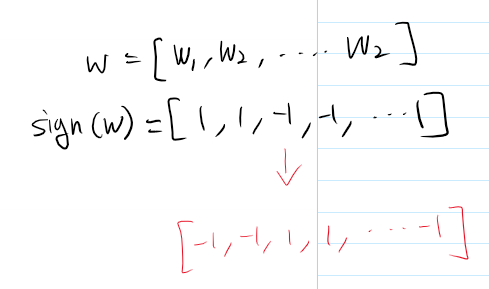 w = [W₁, W₂, ..... W₂]
sign(w) = [1, 1, -1, -1, ...1]
↓
[-1, -1, 1, 1, .....-1]